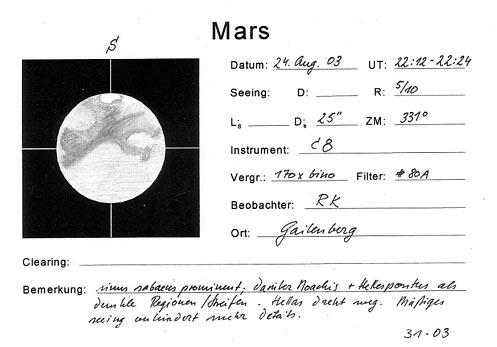 Mars
S
Datum: 24. Aug. 03 UT: 22:12-22:24
Seeing: D: R: 5/10
Ls D: 25" ZM: 331°
Instrument: C8
Vergr.: 170x bino Filter: #80A
Beobachter: RK
Ort: Gailenberg
Clearing:
Bemerkung: sinus sabaeus prominent, darüber Noachis + Hellespontus als
dunkle Regionen/Streifen. Hellas dreht weg. Mäßiges
seeing verhindert mehr Details.
31-03